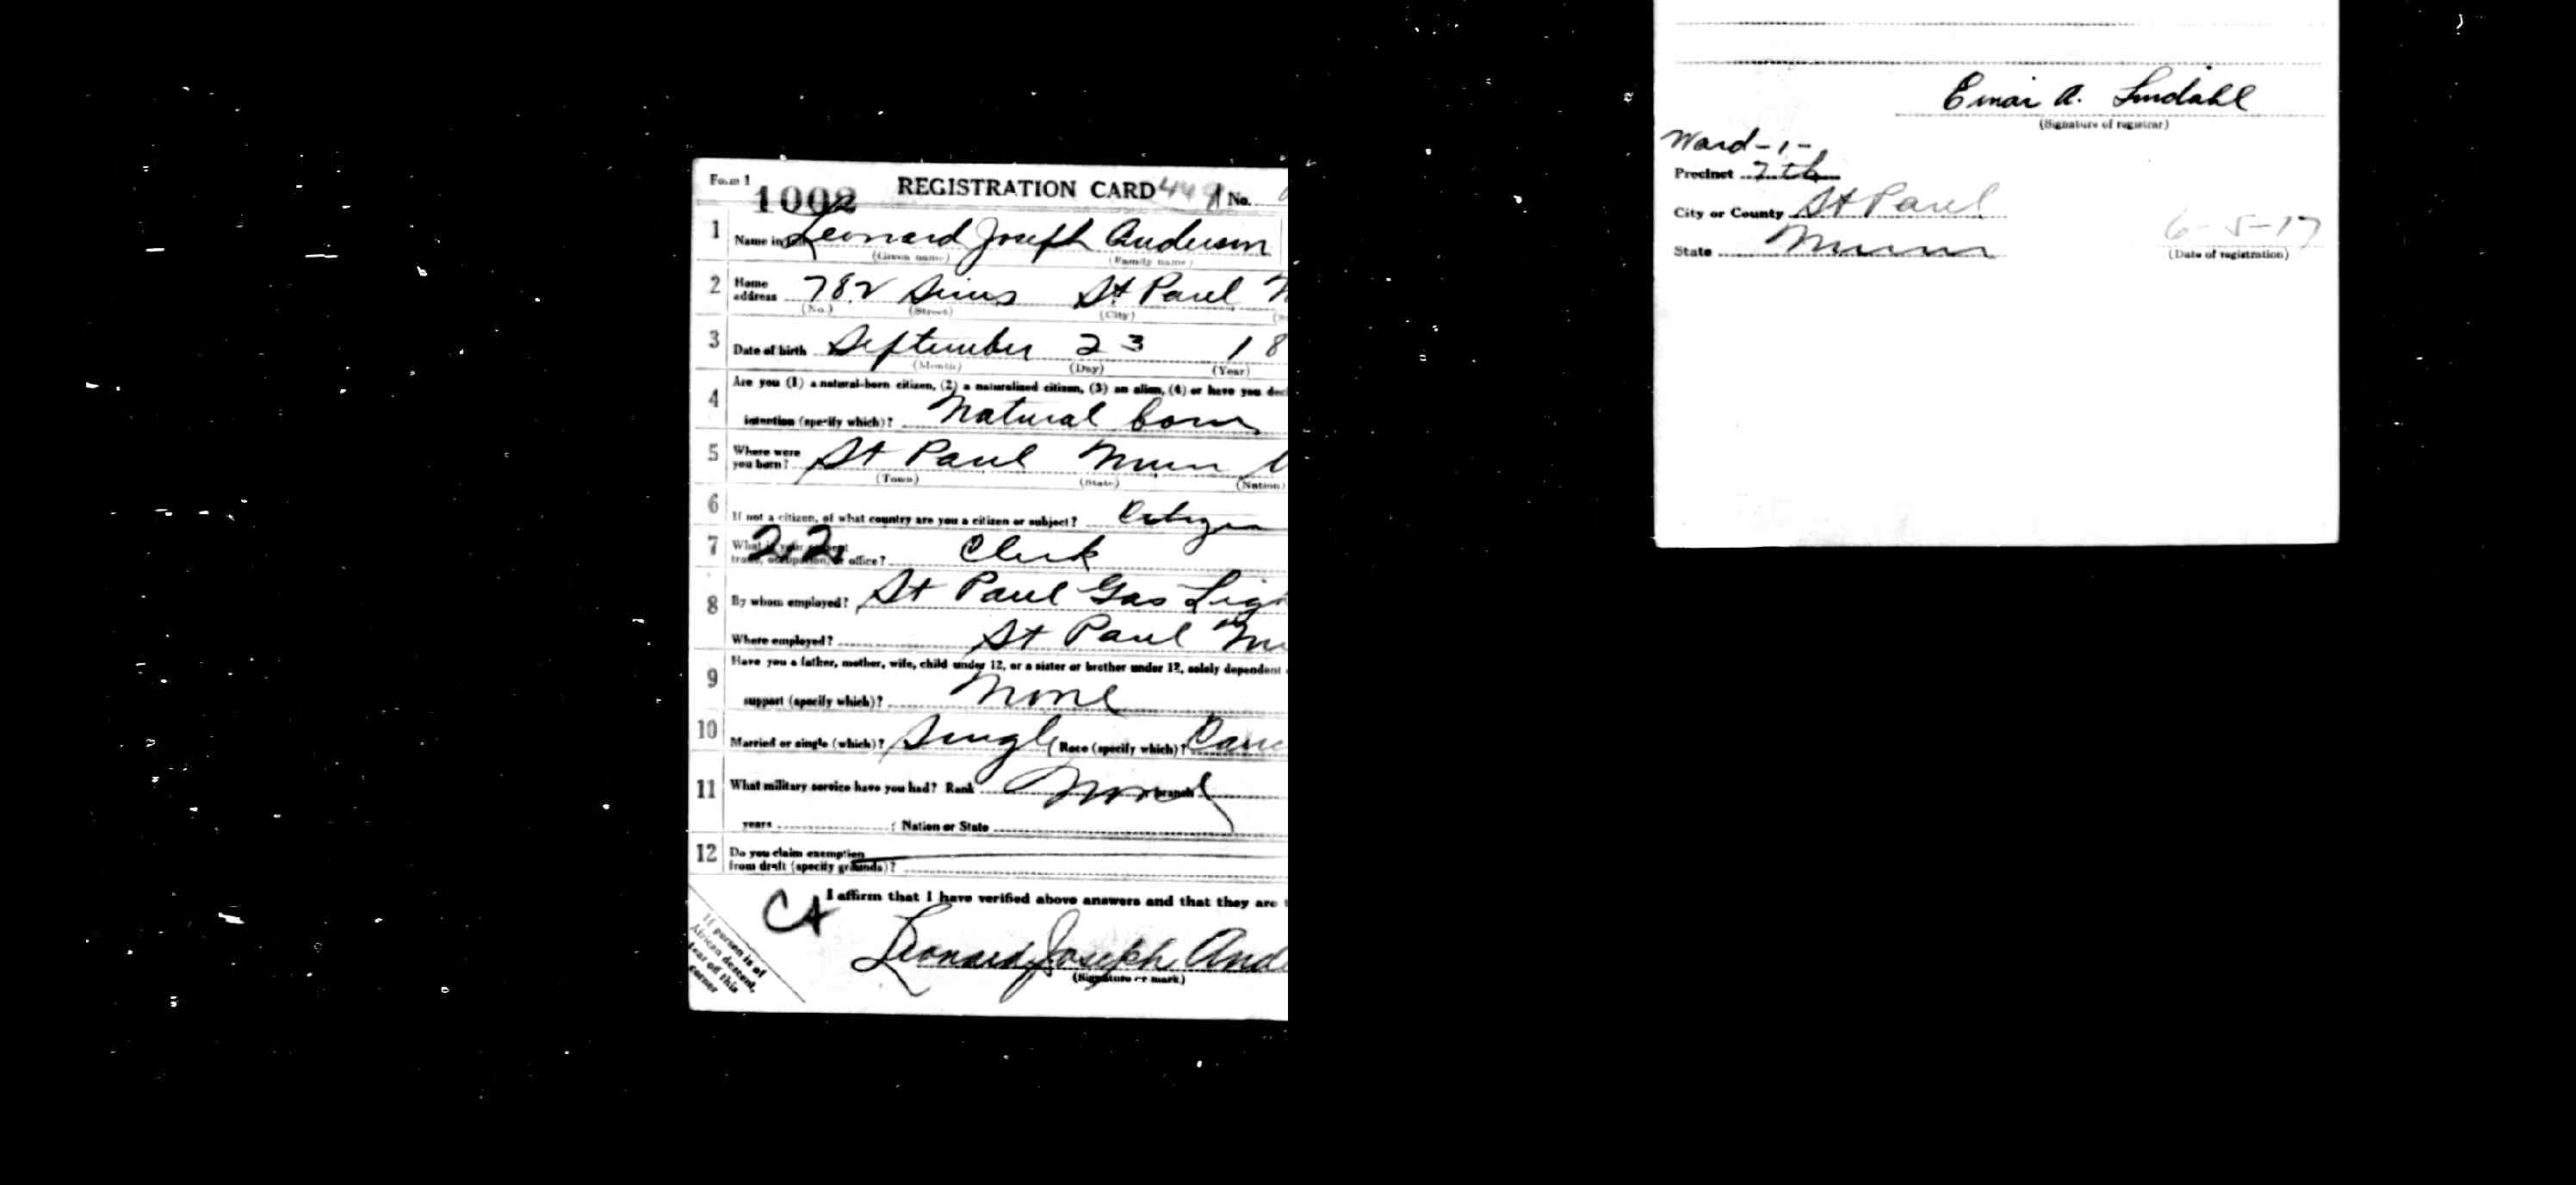 Form 1
1002 REGISTRATION CARD No.
1 Name in full Leonard Joseph Anderson
(Given name) (Family name)
2 Home address 782 Sims St Paul
(No.) (Street) (City)
3 Date of birth September 23 18
(Month) (Day) (Year)
4 Are you (1) a natural-born citizen, (2) a naturalized citizen, (3) an alien, (4) or have you dec
intention (specify which)? Natural born
5 Where were you born? St Paul Minn
(Town) (State) (Nation)
6 If not a citizen, of what country are you a citizen or subject? Citizen
7 What is your present
trade, occupation, or office? 22 Clerk
8 By whom employed? St Paul Gas Lig
Where employed? St Paul
9 Have you a father, mother, wife, child under 12, or a sister or brother under 12, solely dependent
support (specify which)? None
10 Married or single (which)? Single Race (specify which)? Cauc
11 What military service have you had? Rank None branch
years ; Nation or State
12 Do you claim exemption
from draft (specify grounds)?
I affirm that I have verified above answers and that they are
Leonard Joseph And
(Signature or mark)
If person is of
African descent,
tear off this
corner
Einar A. Lindahl
(Signature of registrar)
Ward-1-
Precinct 7th
City or County St Paul
State Minn
6-5-17
(Date of registration)